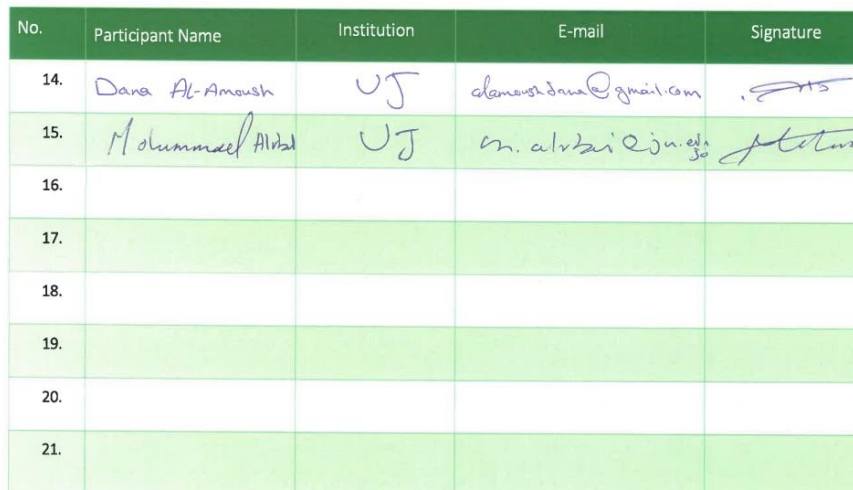 No. Participant Name Institution E-mail Signature
14. Dana Al-Amoush UJ alamoushdana@gmail.com
15. Mohummad UJ
16.
17.
18.
19.
20.
21.